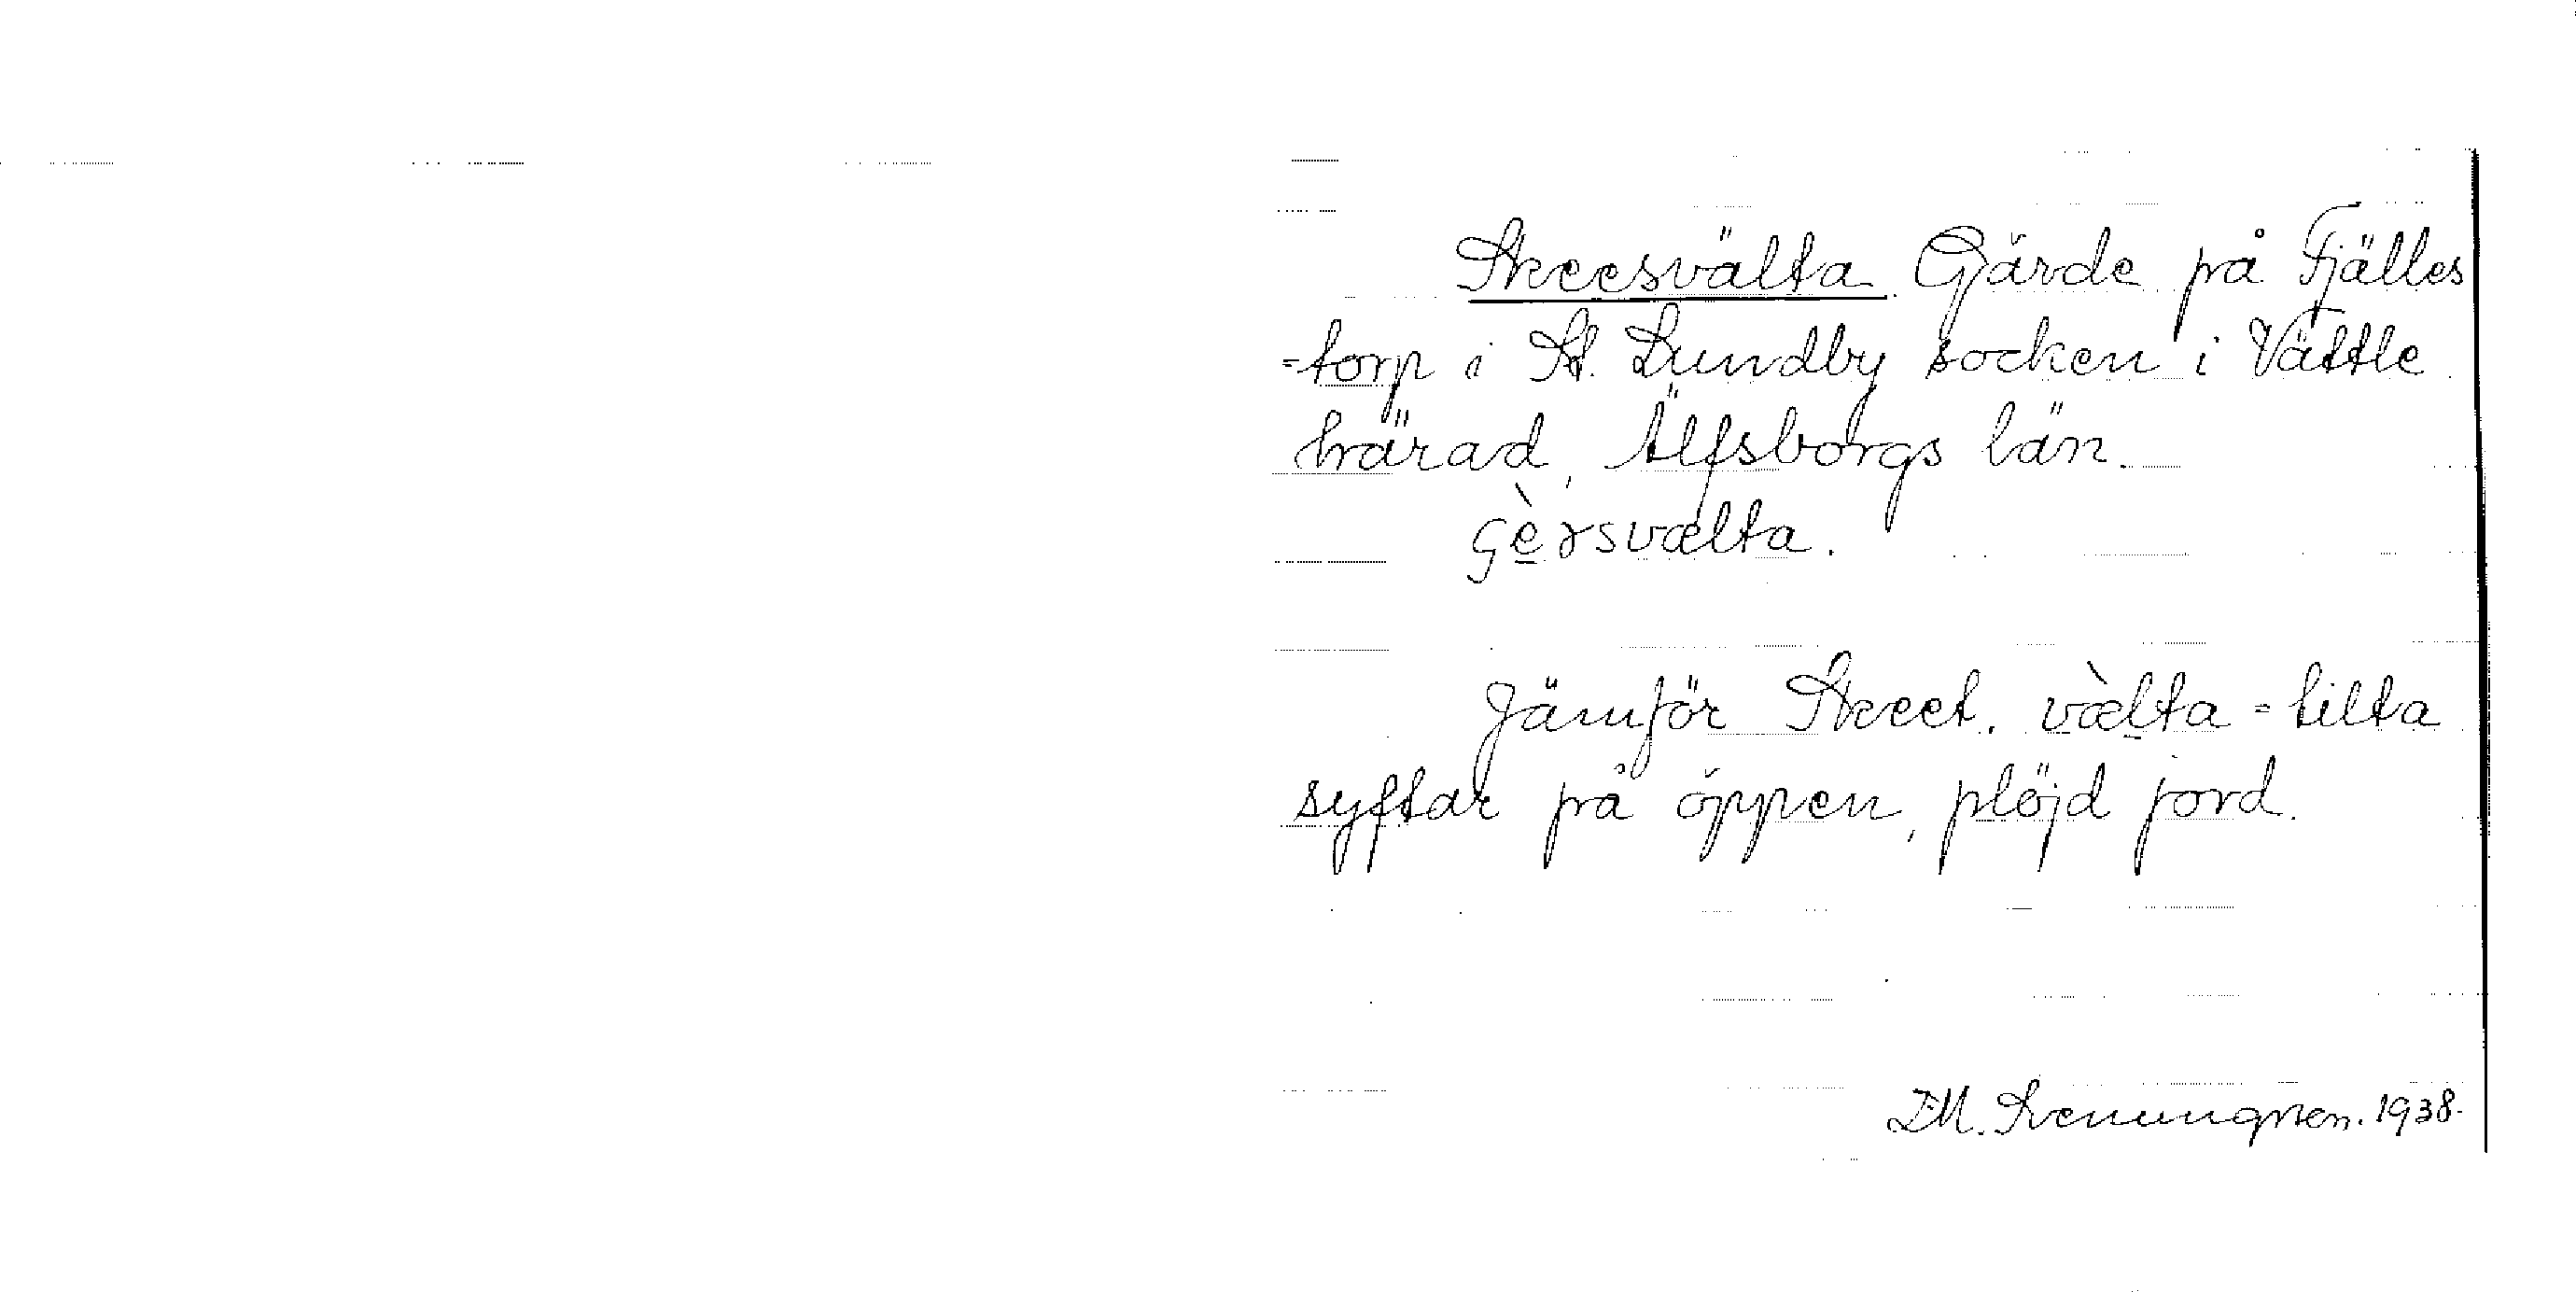 Skeesvälta. Gärde på Fjälles
=torp i St. Lundby socken i Vättle
härad, Älfsborgs län.
çèrsvælta.
Jämför Skeet. vælta = tilta
syftar på öppen, plöjd jord.
1938.